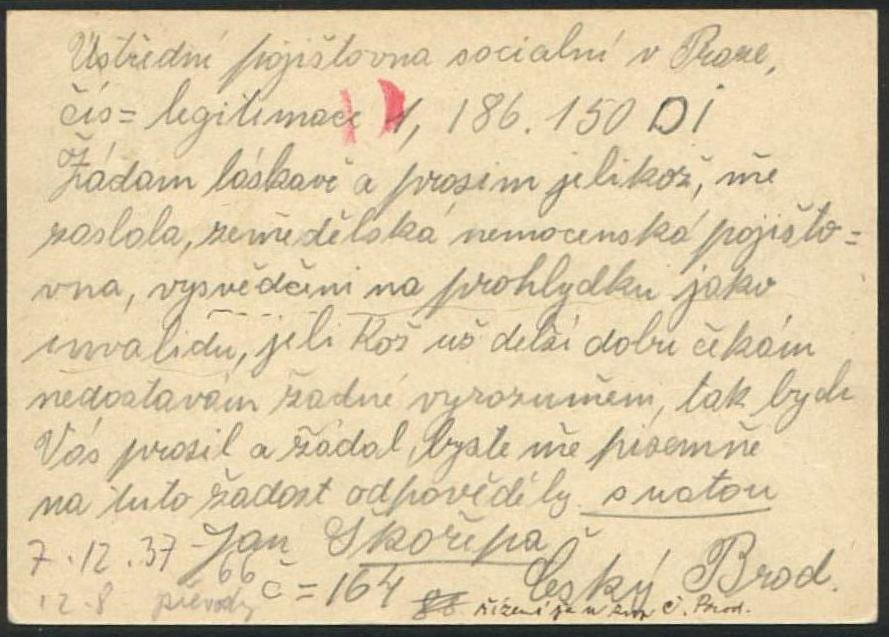 Ústřední pojištovna socialní v Praze,
čís= legitimace 1, 186. 150 DI
Žádam láskavě a prosim jelikož, mě
zaslala, zemědělská nemocenská pojišto=
vna, vysvědčeni na prohlydku jako
invalidu, jeli Kož už delší dobu čekám
nedostavám žadné vyrozumněm, tak bych
Vás prosil a žádal, byste mě písemně
na tuto žadost odpověděly s uctou
7.12.37 Jan Skořepa
66 č=164 Český Brod.
12.8 převody řízení je u č. Brod.